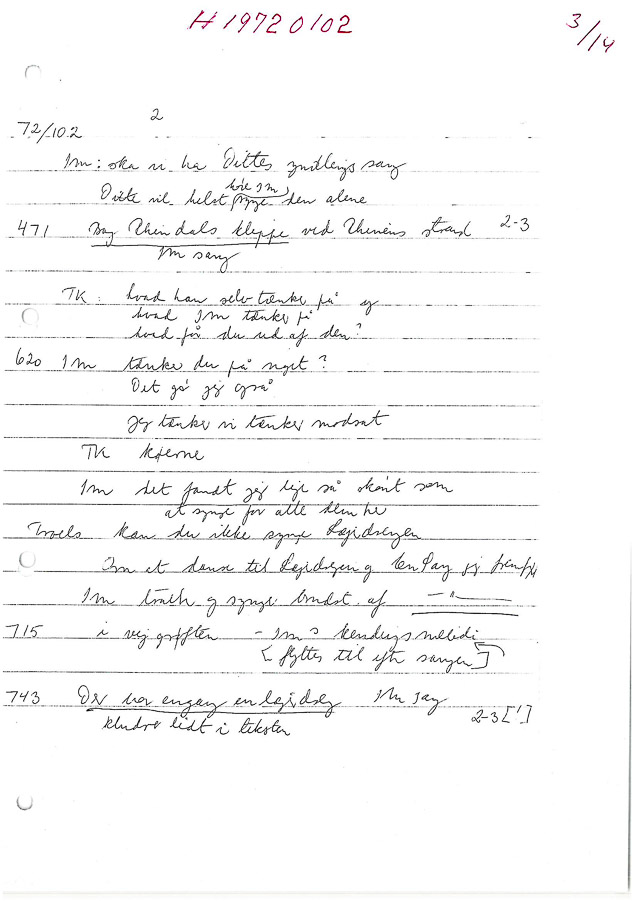 H 1972 0102
3/14
2
72/102
Im: ska vi ha Dittes yndlings sang
høre Im
Ditte vil helst synge den alene
471 ved Rhinens strand 2-3
Im sang
TK: hvad han selv tænker på og
hvad Im tænker på
hvad får du ud af den?
620 Im tænker du på noget?
Det gør jeg også
Jeg tænker vi tænker modsat
TK
Im det fandt jeg lige så skønt som
at synge for alle dem her
Troels kan du ikke synge
Im et danse til og en Dag jeg
Im tralle og synge omkst. af — " —
715 i vejgrøften - Im's kendingsmelodi
[flyttes til eft sangen]
743 Der var engang en Im sang
kludrer lidt i teksten 2-3 [!]